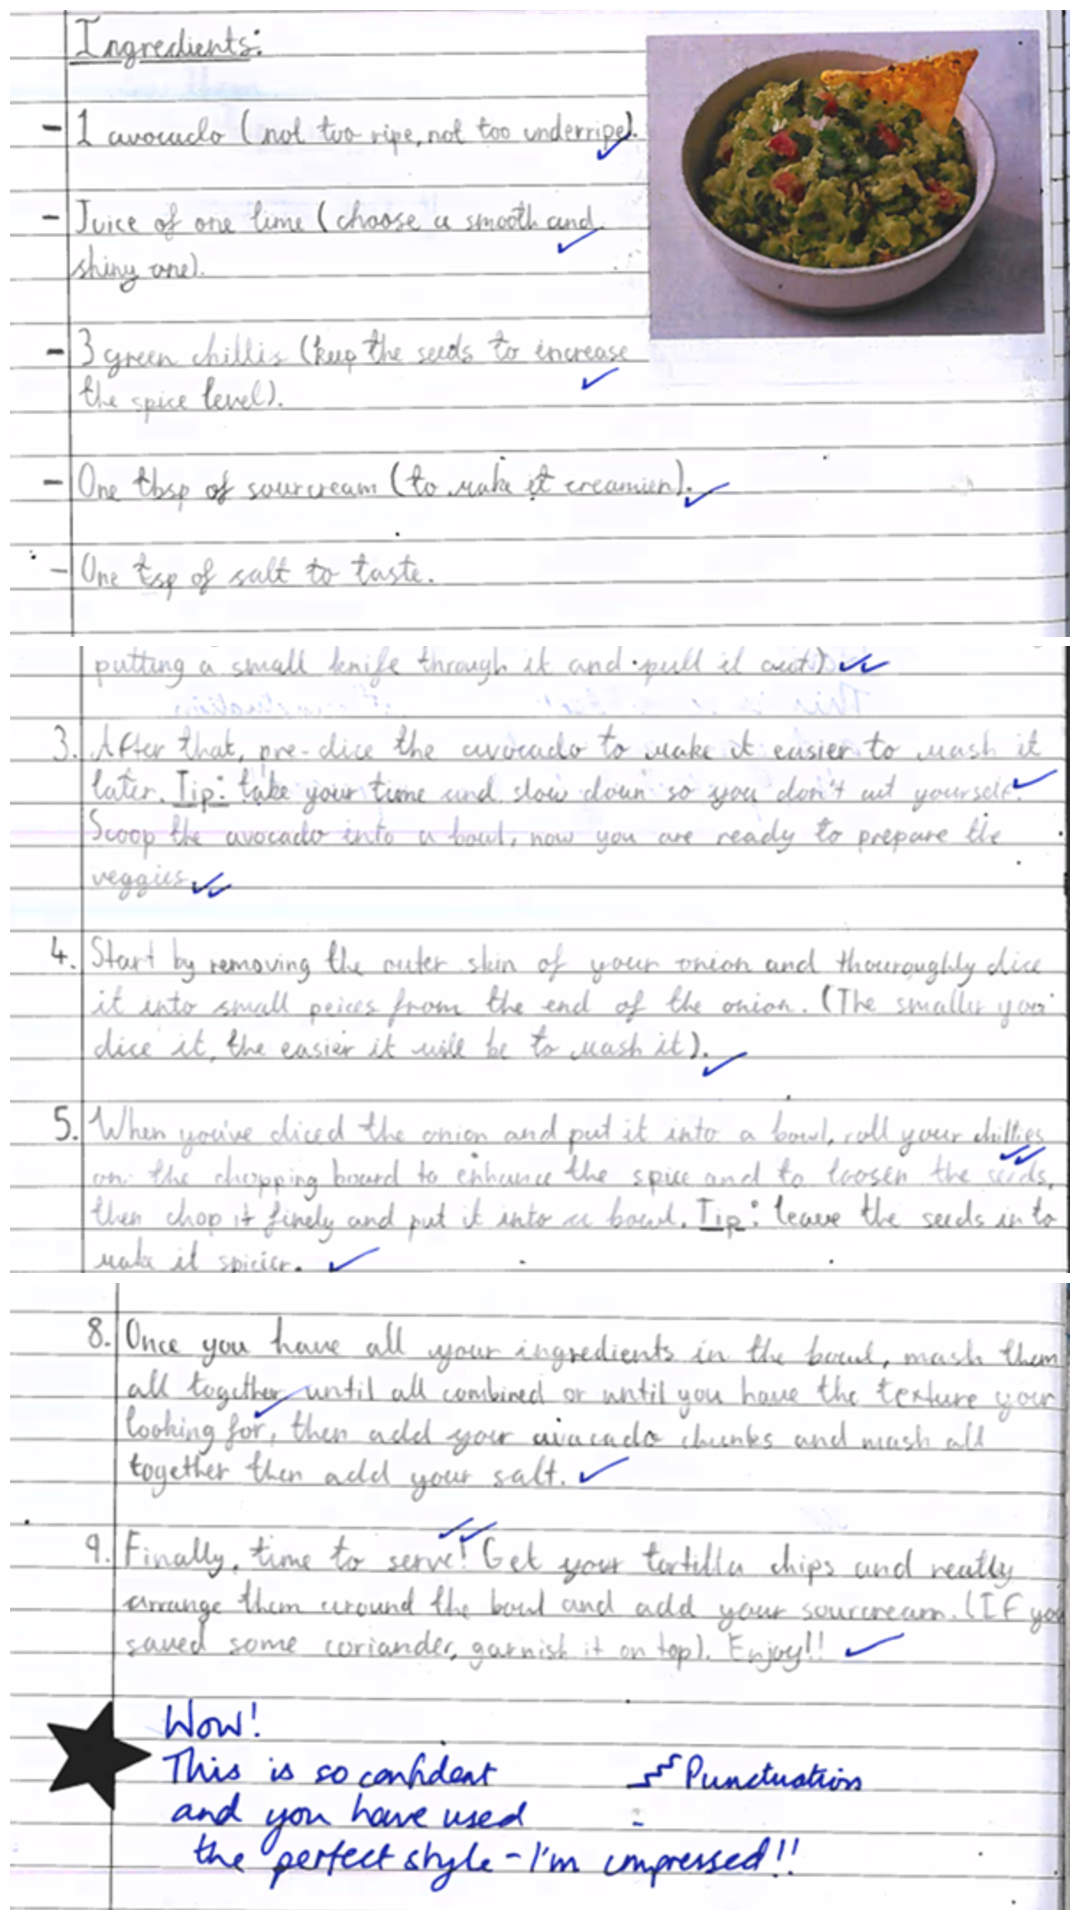 Ingredients:
- 1 avocado (not too ripe, not too underripe).
- Juice of one lime (choose a smooth and
shiny one).
- 3 green chillis (keep the seeds to increase
the spice level).
- One tbsp of sourcream (to make it creamier).
- One tsp of salt to taste.
putting a small knife through it and pull it out)
3. After that, pre-dice the avocado to make it easier to mash it
later. Tip: take your time and slow down so you don't cut yourself.
Scoop the avocado into a bowl, now you are ready to prepare the
veggies
4. Start by removing the outer skin of your onion and thouroughly dice
it into small peices from the end of the onion. (The smaller you
dice it, the easier it will be to mash it).
5. When you've diced the onion and put it into a bowl, roll your chillies
on the chopping board to enhance the spice and to loosen the seeds,
then chop it finely and put it into a bowl. Tip: leave the seeds in to
make it spicier.
8. Once you have all your ingredients in the bowl, mash them
all together until all combined or until you have the texture your
looking for, then add your avacado chunks and mash all
together then add your salt.
9. Finally, time to serve! Get your tortilla chips and neatly
arrange them around the bowl and add your sourcream. (If you
saved some coriander, garnish it on top). Enjoy!!
Wow!
This is so confident
Punctuation
and you have used
the perfect style - I'm impressed!!